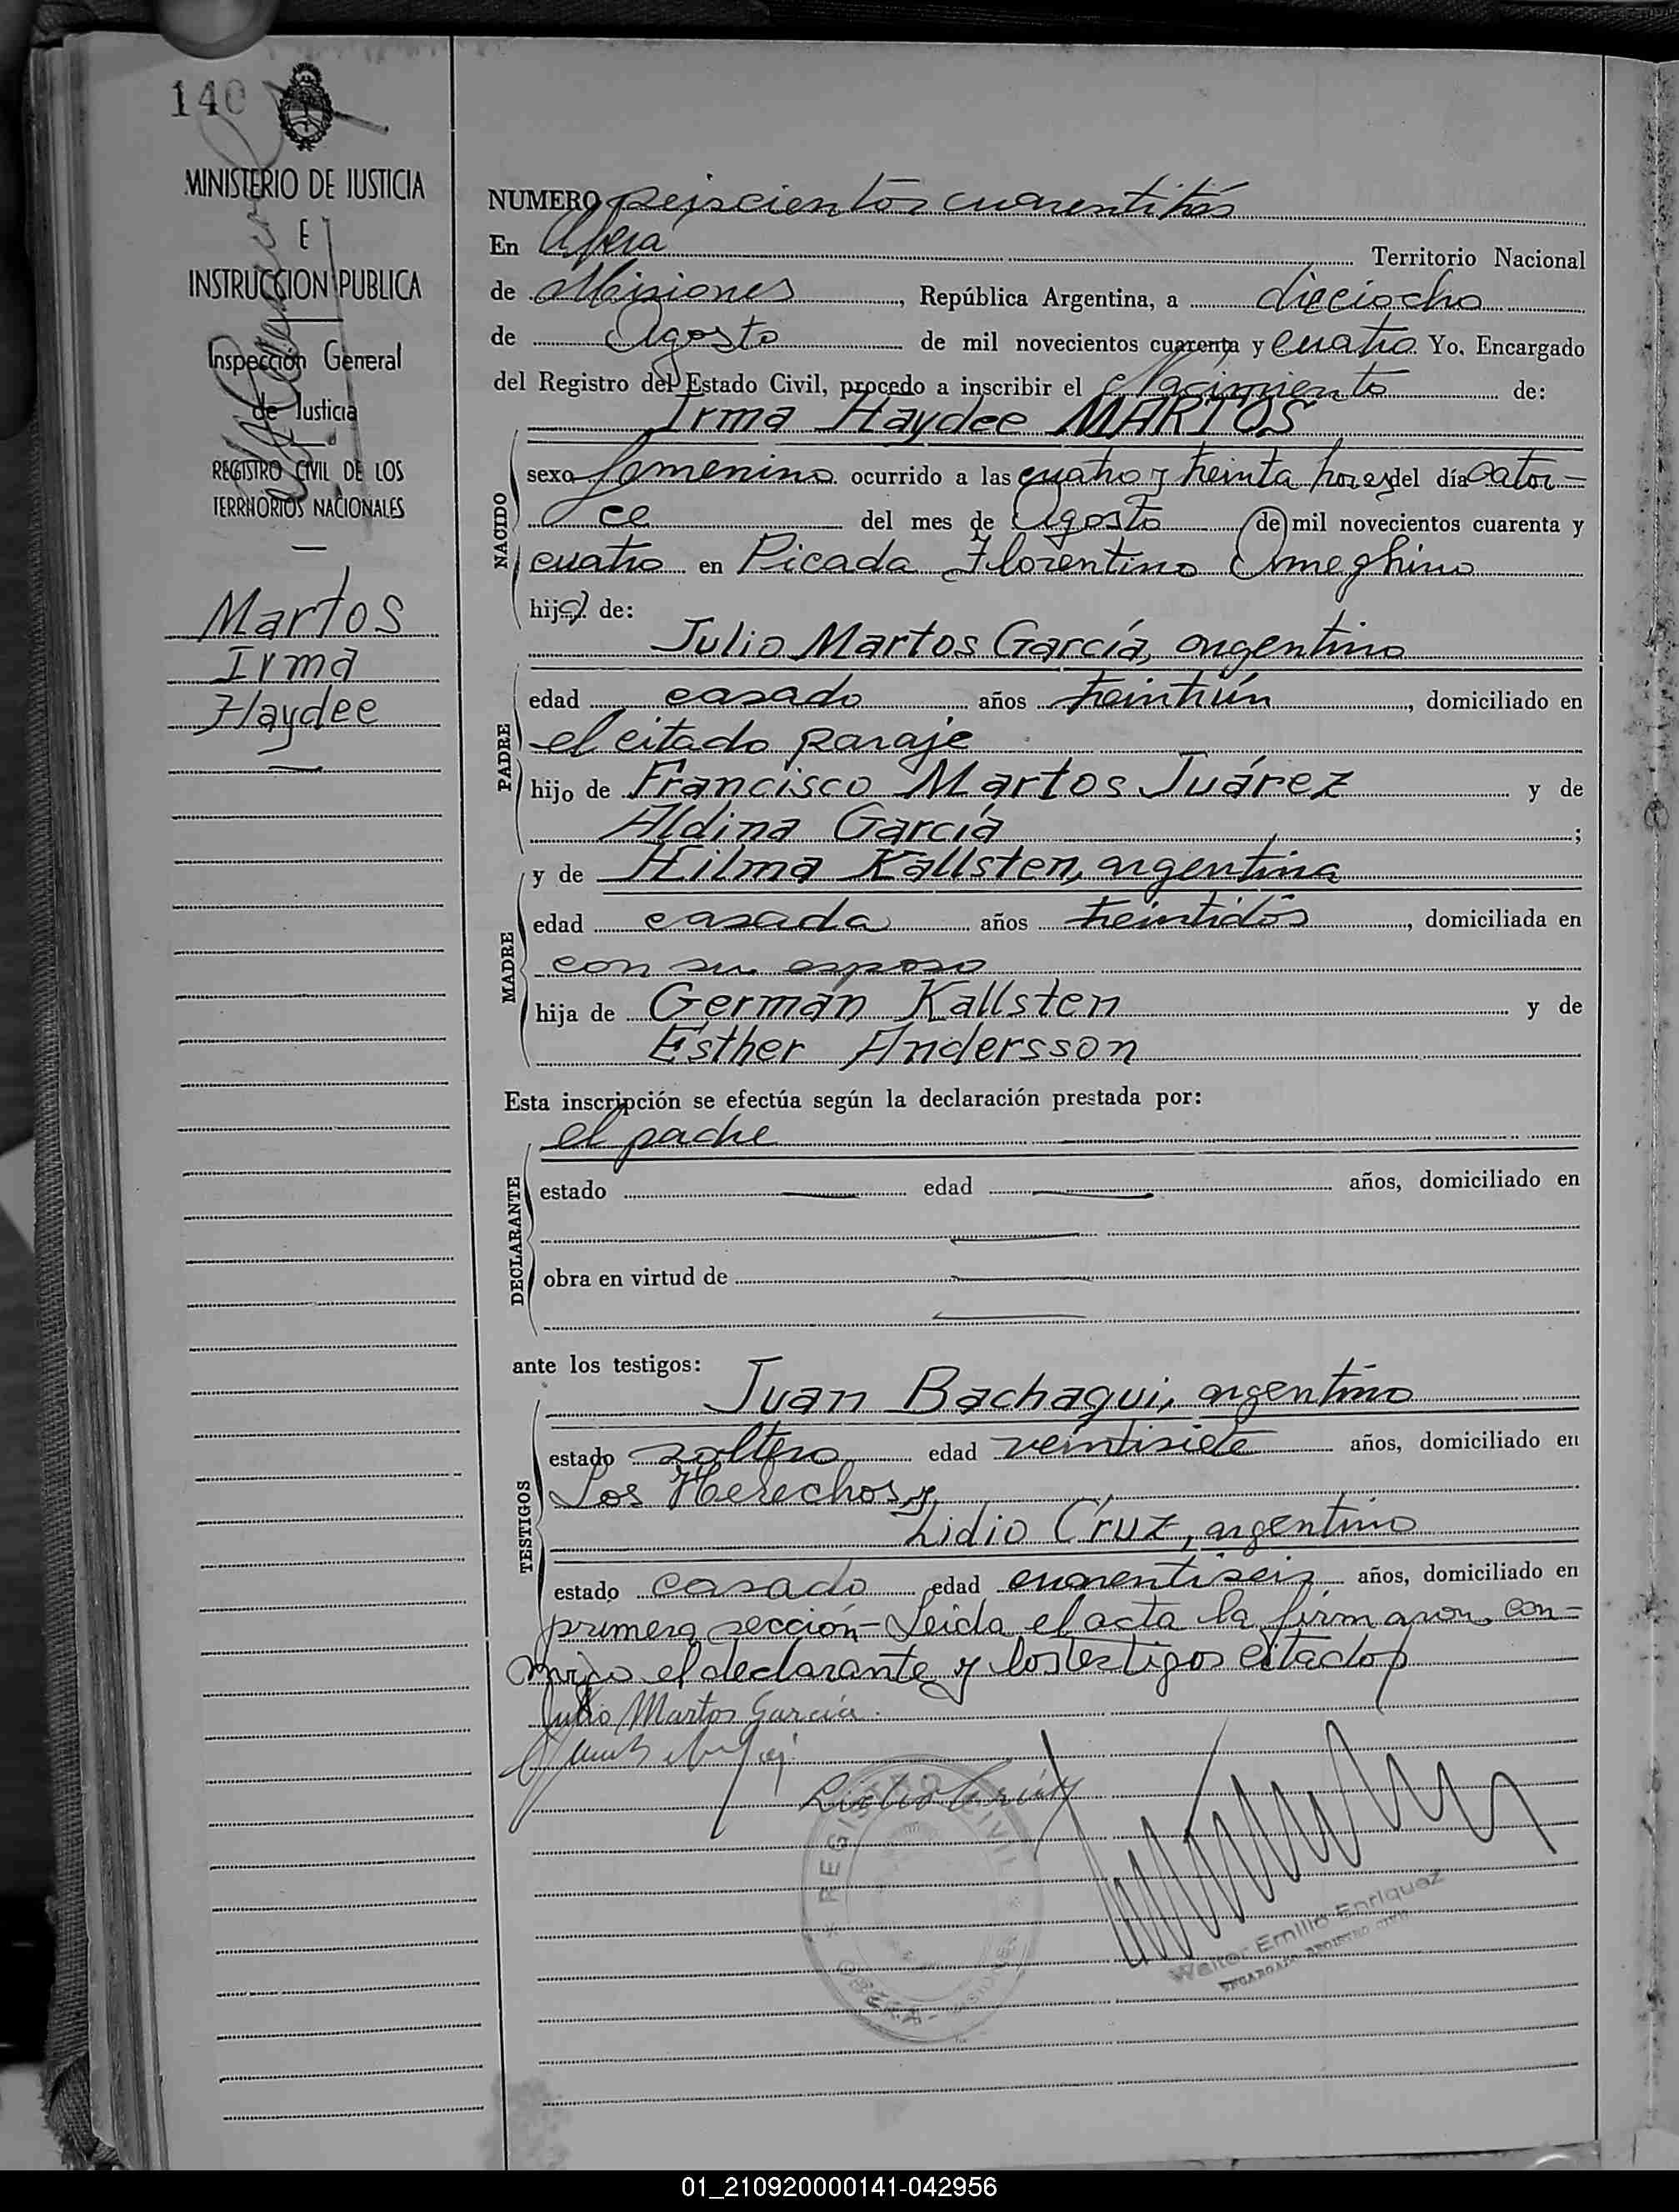 140
MINISTERIO DE JUSTICIA
E
INSTRUCCION PUBLICA
Inspección General
de Justicia
REGISTRO CIVIL DE LOS
TERRITORIOS NACIONALES
Martos
Irma
Haydee
NUMERO seiscientos cuarentitrés
En Oberá Territorio Nacional
de Misiones, República Argentina, a dieciocho
de Agosto de mil novecientos cuarenta y cuatro Yo, Encargado
del Registro del Estado Civil, procedo a inscribir el Nacimiento de:
Irma Haydee MARTOS
NACIDO
sexo femenino ocurrido a las cuatro y treinta horas del día cator-
ce del mes de Agosto de mil novecientos cuarenta y
cuatro en Picada Florentino Ameghino
hija de:
Julio Martos García, argentino
PADRE
edad casado años treintiún, domiciliado en
el citado paraje
hijo de Francisco Martos Juárez y de
Aldina García;
y de Hilma Kallsten, argentina
MADRE
edad casada años treintidós, domiciliada en
con su esposo
hija de Germán Kallsten y de
Esther Andersson
Esta inscripción se efectúa según la declaración prestada por:
el padre
DECLARANTE
estado edad años, domiciliado en
obra en virtud de
ante los testigos:
Juan Bachaqui, argentino
TESTIGOS
estado soltero edad veintisiete años, domiciliado en
Los Helechos y
Lidio Cruz, argentino
estado casado edad cuarentiseis años, domiciliado en
primera sección - Leída el acta la firmaron con-
migo el declarante y los testigos citados
Julio Martos García
Lidio Cruz
REGISTRO CIVIL
OBERÁ
Walter Emilio Enriquez
ENCARGADO REGISTRO CIVIL
01_210920000141-042956